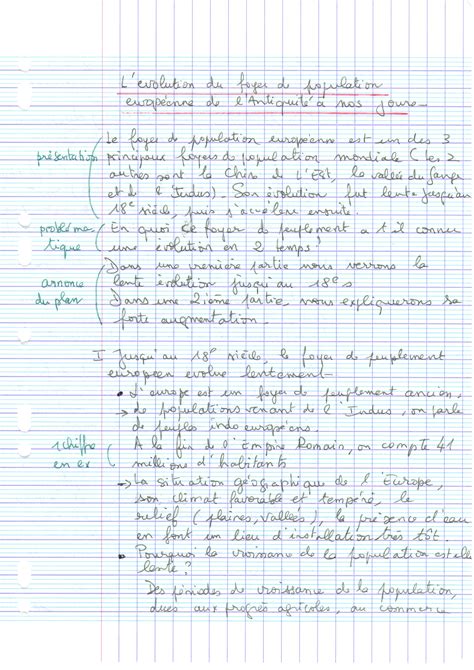 L'evolution du foyer de population
européenne de l'Antiquité à nos jours
Le foyer de population européenne est un des 3
présentation principaux foyers de population mondiale (les 2
autres sont la Chine de l'Est, la vallée du Gange
et de l'Indus). Son évolution fut lente jusqu'au
18e siècle, puis s'accélère ensuite.
probléma En quoi ce foyer de peuplement a t il connu
tique une évolution en 2 temps?
Dans une première partie nous verrons la
annonce lente évolution jusqu'au 18e s
du plan Dans une 2ième partie, nous expliquerons sa
forte augmentation.
I Jusqu'au 18e siècle, le foyer de peuplement
européen evolue lentement
• L'europe est un foyer de peuplement ancien.
→ de populations venant de l'Indus, on parle
de peuples indo européens.
1 chiffre A la fin de l'Empire Romain, on compte 41
en ex millions d'habitants
→ La situation géographique de l'Europe,
son climat favorable et tempéré, le
relief (plaines, vallées), la présence d'eau
en font un lieu d'installation très tôt.
• Pourquoi la croissance de la population est elle
lente?
Des périodes de croissance de la population,
dues aux progrès agricoles, au commerce